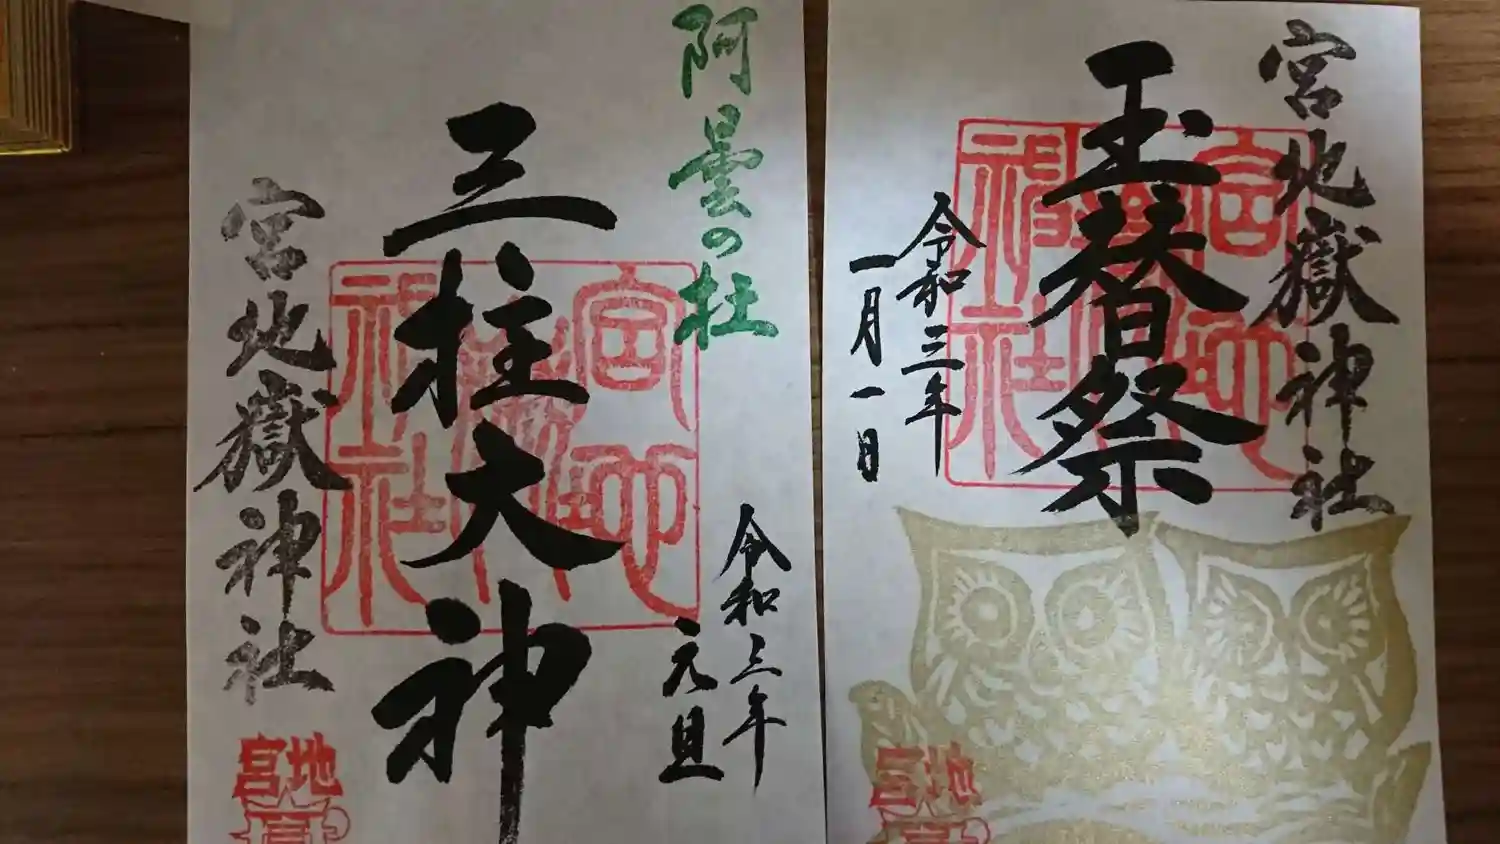 宮地嶽神社
玉替祭
令和三年
一月一日
宮地嶽神社
阿曇の杜
令和三年
元旦
三柱大神
宮地嶽神社
宮地嶽神社
宮地
宮地